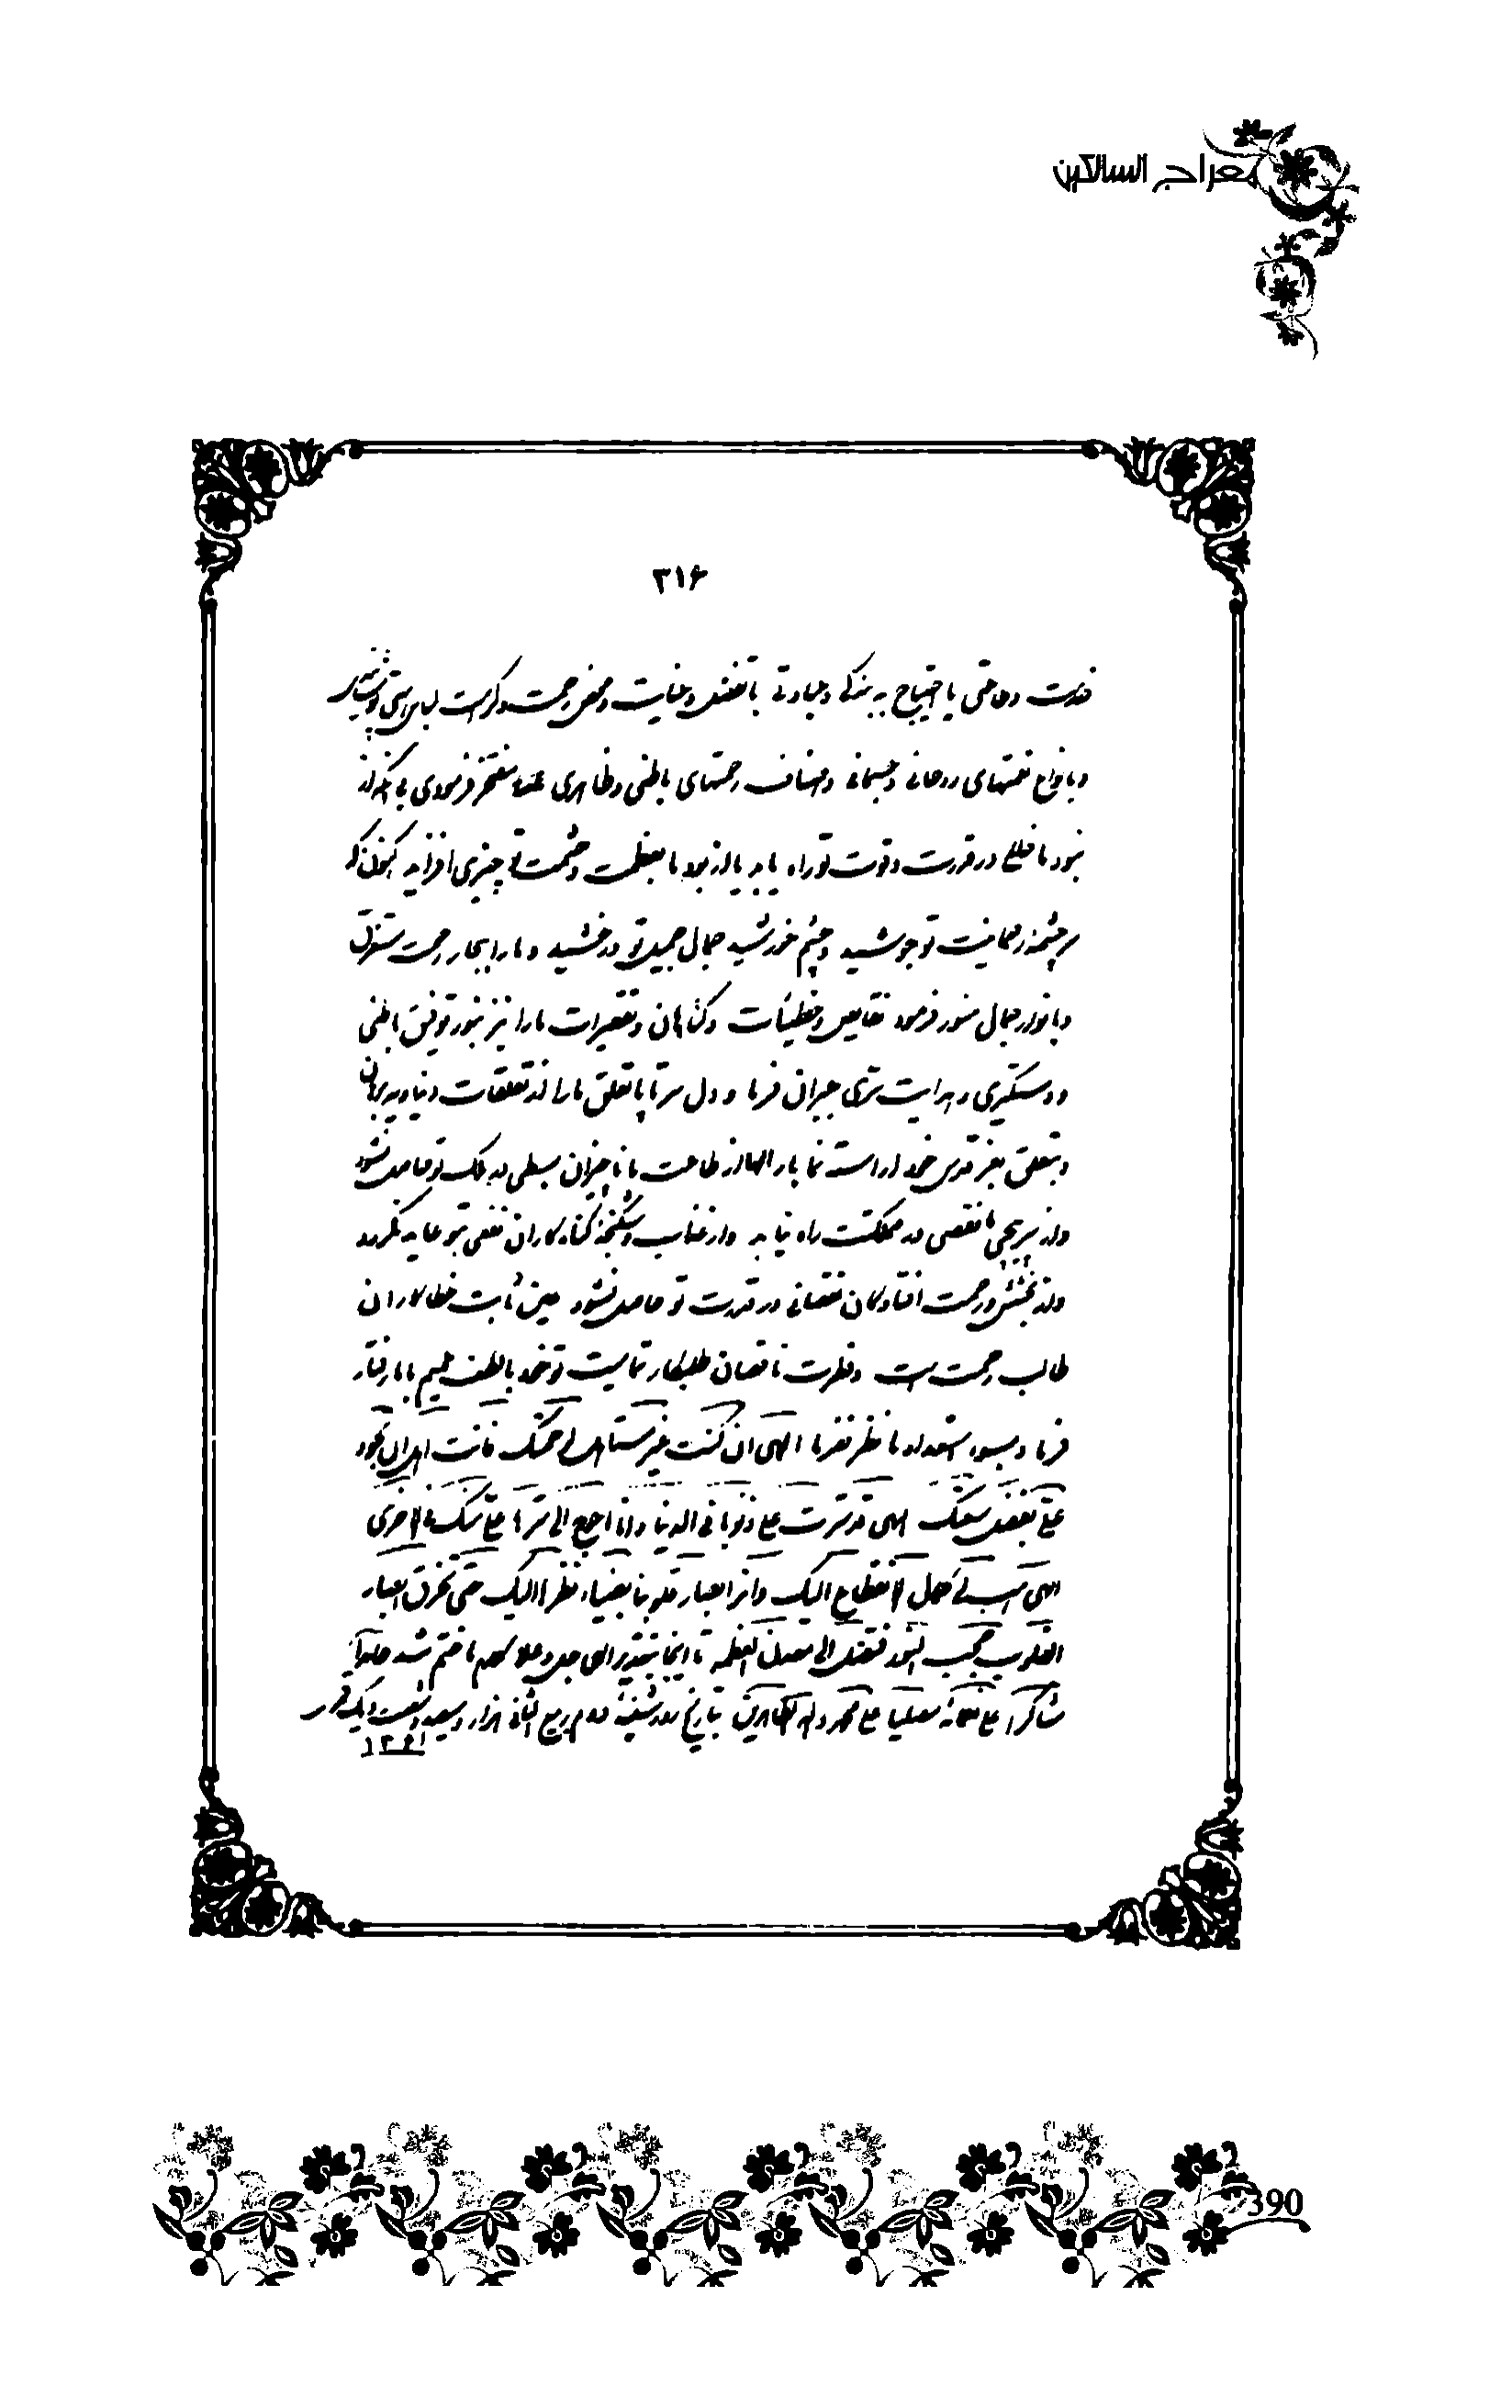 معراج السالكين
٣١۶
خدمت و طاعتی یا احتیاج به بندگی و عبادتی با تفضل و عنایت و محض رحمت و کرامت لباس هستی پوشانیدی
و بانواع نعمتهای روحانی و جسمانی و اصناف رحمتهای باطنی و ظاهری ما را مفتخر فرمودی بی آنکه از
نبود ما خللی در قدرت و قوت تو راه یابد یا از بود ما بعظمت و حشمت تو چیزی افزاید اکنون که
سرچشمه رحمانیت تو جوشید و چشم خورشید جمال جمیل تو درخشید و ما را ببحار رحمت مستغرق
و بانوار جمال منور فرمود نقایص و خطیئات و گناهان و تقصیرات ما را نیز بنور توفیق باطنی
و دستگیری و هدایت سری جبران فرما و دل سرتاپا تعلق ما را از تعلقات دنیاویه برهان
و بتعلق بعز قدس خود آراسته نما بار الها از طاعت ما ناچیزان بسطی در ملک تو حاصل نشود
و از سرپیچی ما نقصی در مملکتت راه نیابد و از عذاب و شکنجه گناهکاران نفعی بتو عاید نگردد
و از بخشش و رحمت افتادگان نقصانی در قدرت تو حاصل نشود عین ثابت خطاکاران
طالب رحمت است و فطرت ناقصان طلبکار تمامیت تو خود با لطف عمیم با ما رفتار
فرما و بسوء استعداد ما نظر نفرما الهی ان کنت غیر مستاهل لرحمتک فانت اهل ان تجود
علی بفضل سعتک الهی قد سترت علی ذنوبا فی الدنیا و انا احوج الی سترها علی منک فی الاخری
الهی هب لی کمال الانقطاع الیک و انر ابصار قلوبنا بضیاء نظرها الیک حتی تخرق ابصار
القلوب حجب النور فتصل الی معدن العظمة تا اینجا بتقدیر الهی جل و علا کلام ما ختم شد حامداً
شاکراً علی نعمائه مصلیا علی محمد و آله الطاهرین بتاریخ روز دوشنبه دوم ربیع الثانی هزار و سیصد و شصت و یک قمری
١٣۶١
390